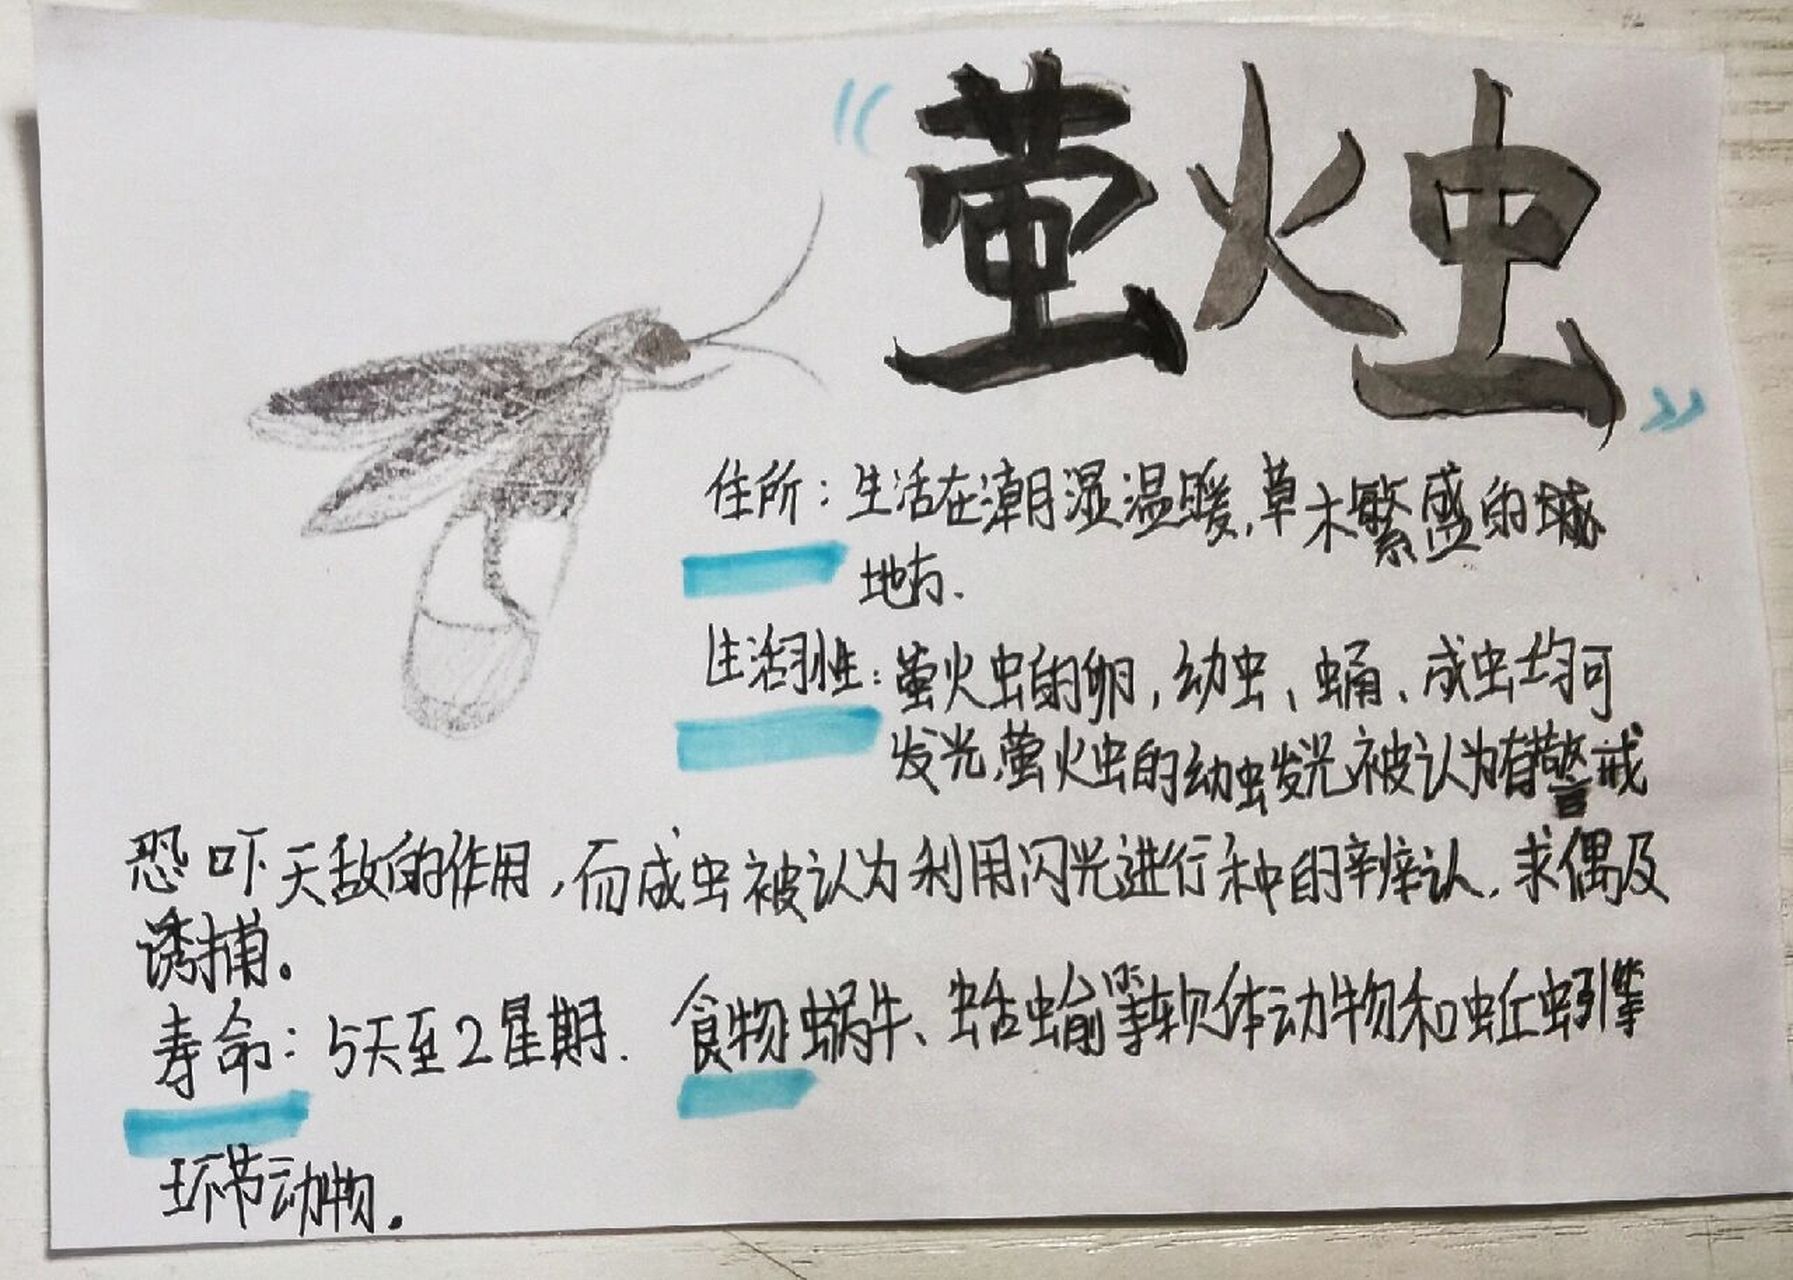 “萤火虫”
住所：生活在潮湿温暖,草木繁盛的
地方.
生活习性：萤火虫的卵,幼虫、蛹、成虫均可
发光,萤火虫的幼虫发光被认为有警戒
恐吓天敌的作用,而成虫被认为利用闪光进行种的辨认,求偶及
诱捕。
寿命：5天至2星期. 食物蜗牛、蛞蝓等软体动物和蚯蚓等
环节动物.